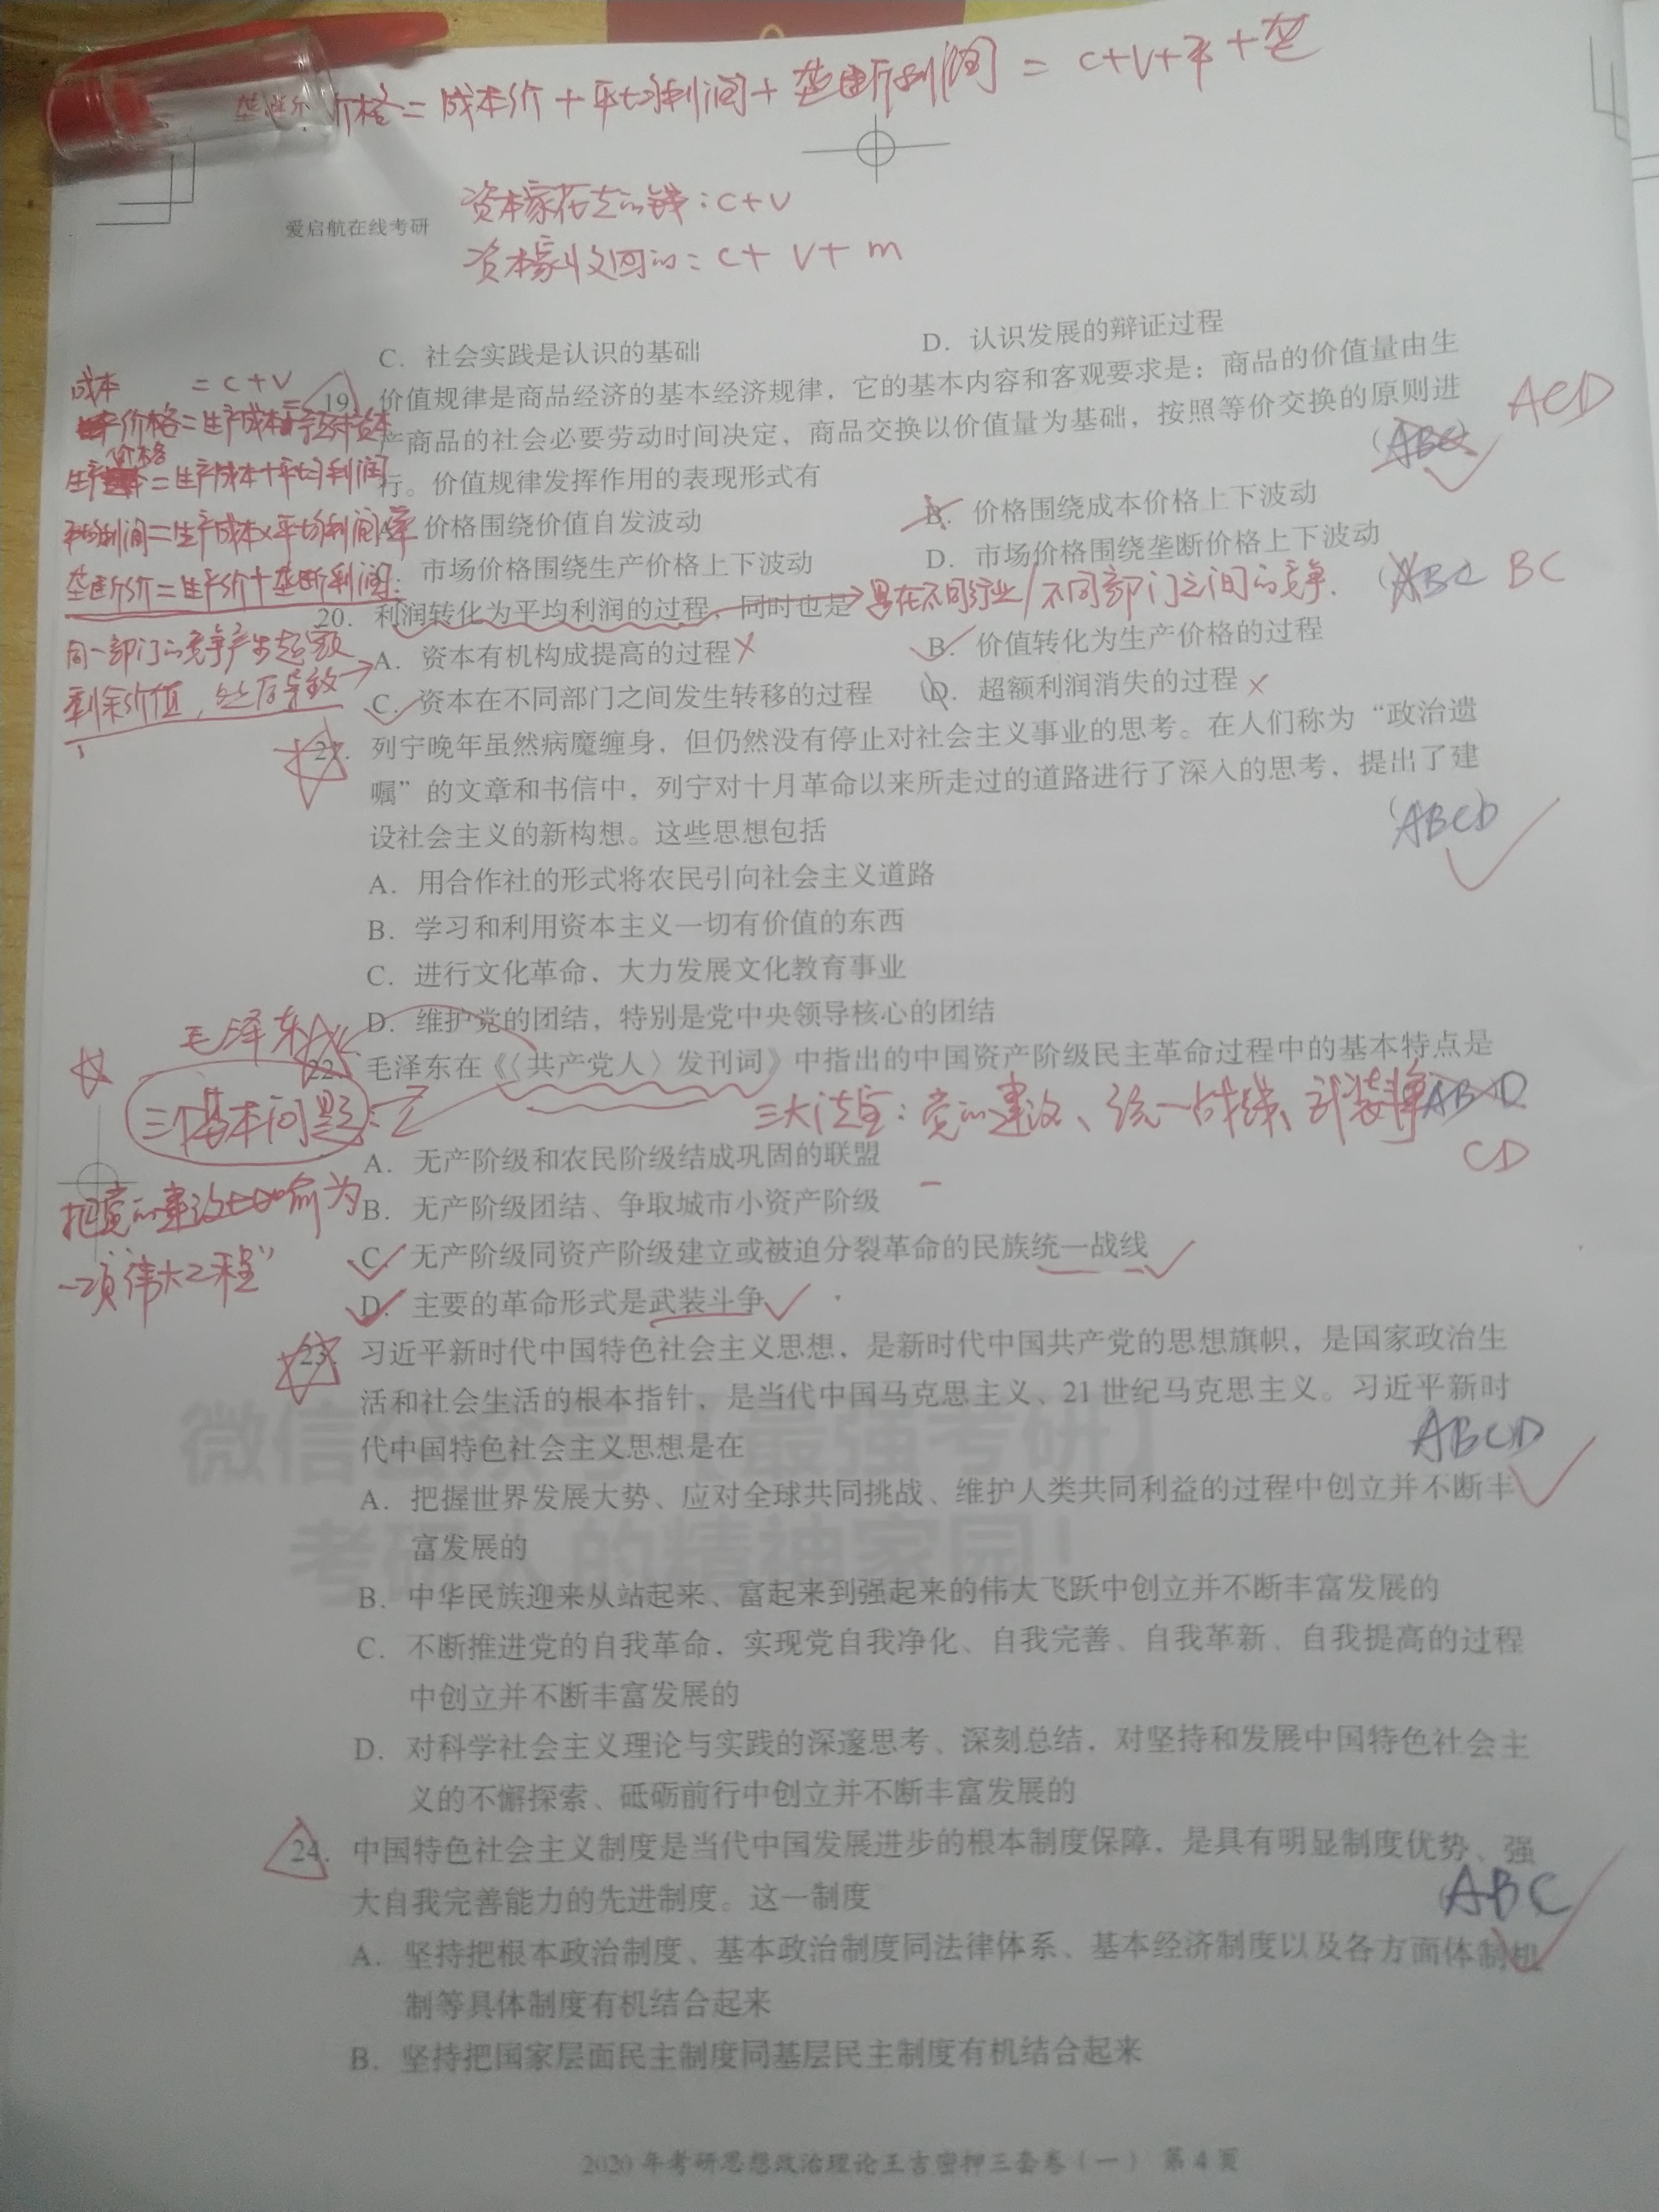 价格=成本价+平均利润+垄断利润 = C+V+平+垄
资本家花去的钱：C+V
爱启航在线考研
资本家收回的：C+ V+ m
C. 社会实践是认识的基础
D. 认识发展的辩证过程
成本 = C+V
19. 价值规律是商品经济的基本经济规律，它的基本内容和客观要求是：商品的价值量由生
产商品的社会必要劳动时间决定，商品交换以价值量为基础，按照等价交换的原则进
ACD
行。价值规律发挥作用的表现形式有
生产价格=生产成本+平均利润
A. 价格围绕价值自发波动
B. 价格围绕成本价格上下波动
平均利润=生产成本×平均利润率
市场价格围绕生产价格上下波动
D. 市场价格围绕垄断价格上下波动
垄断价=生产价+垄断利润
20. 利润转化为平均利润的过程，同时也是
是在不同行业/不同部门之间的竞争.
ABC BC
同一部门的竞争产生超额
剩余价值，然后导致→
A. 资本有机构成提高的过程×
B. 价值转化为生产价格的过程
C. 资本在不同部门之间发生转移的过程
D. 超额利润消失的过程×
21. 列宁晚年虽然病魔缠身，但仍然没有停止对社会主义事业的思考。在人们称为“政治遗
嘱”的文章和书信中，列宁对十月革命以来所走过的道路进行了深入的思考，提出了建
设社会主义的新构想。这些思想包括
ABCD
A. 用合作社的形式将农民引向社会主义道路
B. 学习和利用资本主义一切有价值的东西
C. 进行文化革命，大力发展文化教育事业
D. 维护党的团结，特别是党中央领导核心的团结
毛泽东
22. 毛泽东在《〈共产党人〉发刊词》中指出的中国资产阶级民主革命过程中的基本特点是
三个基本问题：
三大法宝：党的建设、统一战线、武装斗争
ABD
CD
A. 无产阶级和农民阶级结成巩固的联盟
B. 无产阶级团结、争取城市小资产阶级
把党的建设比喻为
一项“伟大工程”
C. 无产阶级同资产阶级建立或被迫分裂革命的民族统一战线
D. 主要的革命形式是武装斗争
23. 习近平新时代中国特色社会主义思想，是新时代中国共产党的思想旗帜，是国家政治生
活和社会生活的根本指针，是当代中国马克思主义、21世纪马克思主义。习近平新时
代中国特色社会主义思想是在
ABCD
A. 把握世界发展大势、应对全球共同挑战、维护人类共同利益的过程中创立并不断丰
富发展的
B. 中华民族迎来从站起来、富起来到强起来的伟大飞跃中创立并不断丰富发展的
C. 不断推进党的自我革命，实现党自我净化、自我完善、自我革新、自我提高的过程
中创立并不断丰富发展的
D. 对科学社会主义理论与实践的深邃思考、深刻总结，对坚持和发展中国特色社会主
义的不懈探索、砥砺前行中创立并不断丰富发展的
微信公众号【最强考研】
考研人的精神家园！
24. 中国特色社会主义制度是当代中国发展进步的根本制度保障，是具有明显制度优势、强
大自我完善能力的先进制度。这一制度
ABC
A. 坚持把根本政治制度、基本政治制度同法律体系、基本经济制度以及各方面体制机
制等具体制度有机结合起来
B. 坚持把国家层面民主制度同基层民主制度有机结合起来
2020年考研思想政治理论王吉密押三套卷（一） 第4页